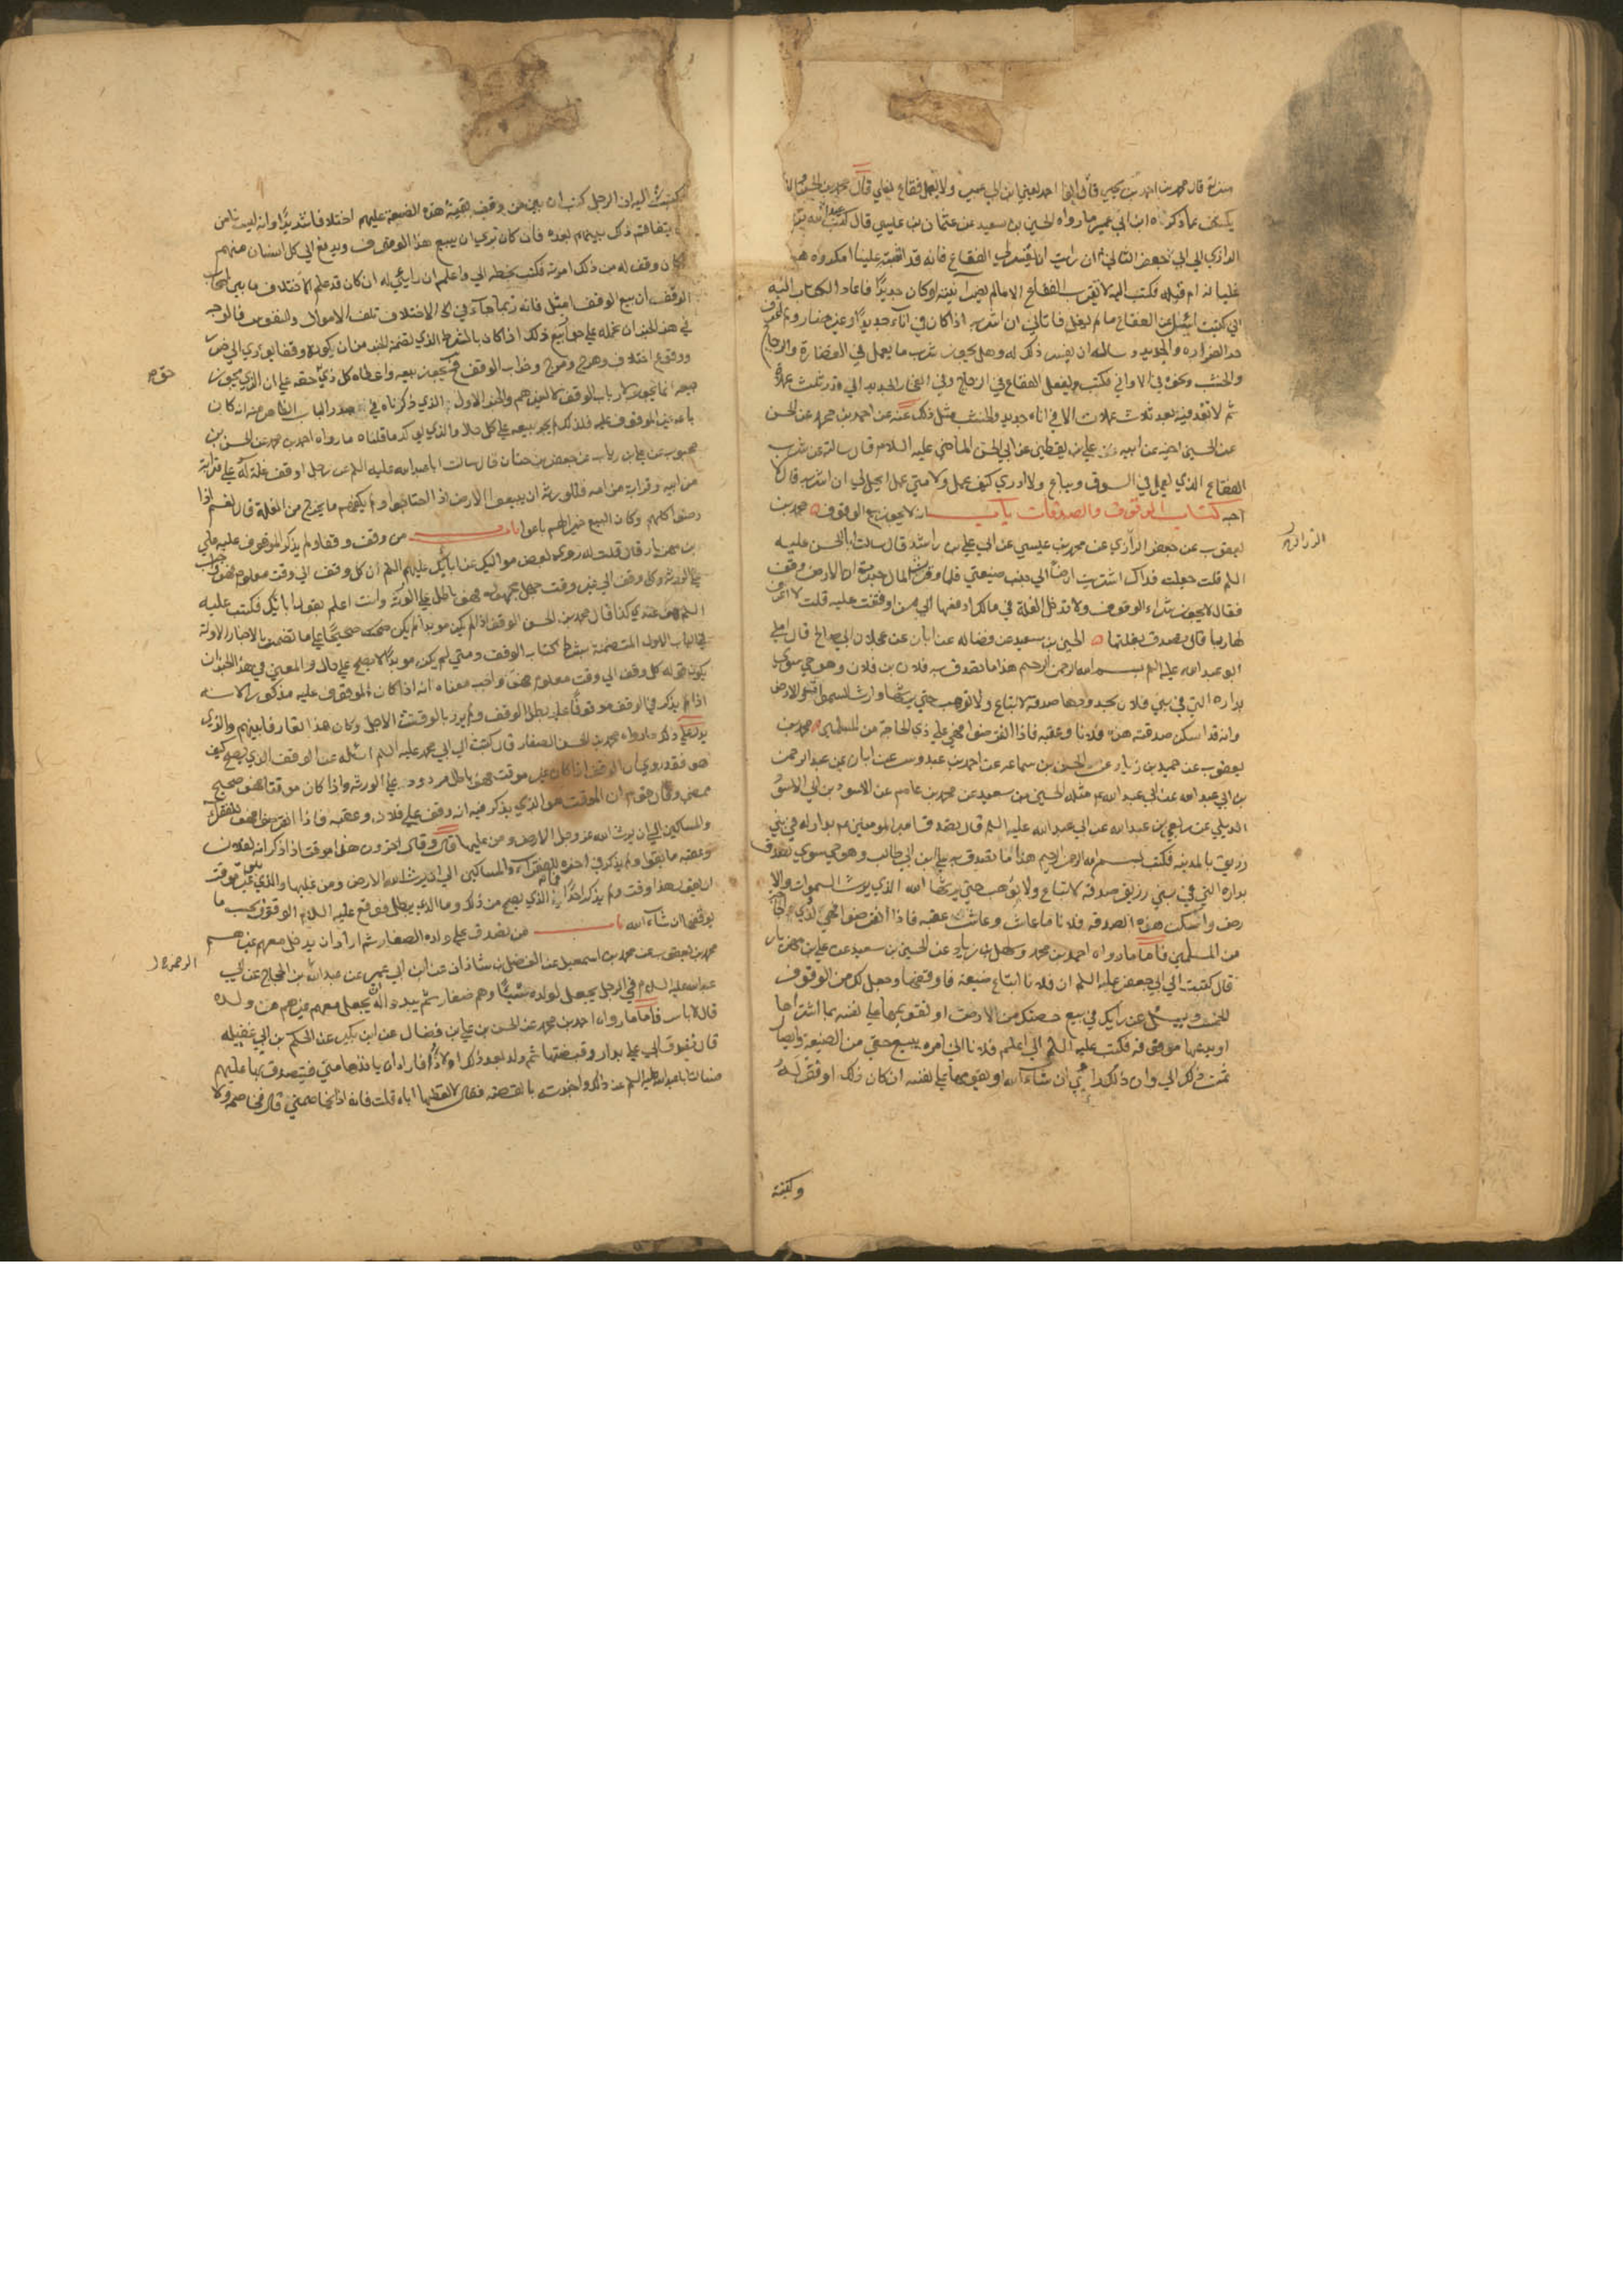 منزلة قال محمد بن احمد بن يحيى قال ابو احمد يعني ابن ابي عمير ولا يعمل فقاع يغلي قال محمد بن الحسن والذي
يكشف عما ذكرناه ابن ابي عمير ما رواه الحسين بن سعيد عن عثمان بن عيسى قال كتب عبد الله بن
الرازي الى ابي جعفر الثاني ان رايت ان تفسر لي الفقاع فانه قد اشتبه علينا امكروه هو
غليانه ام قبله فكتب اليه لا تقرب الفقاع الا ما لم يضر انيته او كان جديدا فاعاد الكتاب اليه
اني كتبت اسئل عن الفقاع ما لم يغل فاتاني ان اشربه اذا كان في اناء جديد او غير ضار ولم اعرف
حد الضراوة والجديد وسالته ان يفسر ذلك له وهل يجوز شرب ما يعمل في الغضارة والزجاج
والخشب ونحوه من الاواني فكتب يفعل الفقاع في الزجاج وفي الفخار الجديد الى قدر ثلث عملات
ثم لا تعد فيه بعد ثلاث عملات الا في اناء جديد والخشب مثل ذلك عنه عن احمد بن محمد عن الحسن
عن الحسين اخيه عن ابيه علي بن يقطين عن ابي الحسن الماضي عليه السلام قال سالته عن شرب
الفقاع الذي يعمل في السوق ويباع ولا ادري كيف عمل ولا متى عمل ايحل لي ان اشربه قال لا
احبه كتاب الوقوف والصدقات باب انه لا يجوز بيع الوقوف محمد بن
يعقوب عن جعفر الرازي عن محمد بن عيسى عن ابي علي بن راشد قال سالت ابا الحسن عليه
السلم قلت جعلت فداك اشتريت ارضا الى جنب ضيعتي فلما وفرت المال خبرت ان الارض وقف
فقال لا يجوز شراء الوقوف ولا تدخل الغلة في مالك ادفعها الى من اوقفت عليه قلت لا اعرف
لها ربا قال تصدق بغلتها الحسين بن سعيد عن فضالة عن ابان عن عجلان ابي صالح قال املى
ابو عبد الله عليه السلم بسم الله الرحمن الرحيم هذا ما تصدق به فلان بن فلان وهو حي سوي
بداره التي في بني فلان بحدودها صدقة لا تباع ولا توهب حتى يرثها وارث السموات والارض
وانه قد اسكن صدقته هذه فلانا وعقبه فاذا انقرضوا فهي على ذي الحاجة من المسلمين محمد بن
يعقوب عن حميد بن زياد عن الحسن بن سماعة عن احمد بن عبدوس عن ابان عن عبد الرحمن
بن ابي عبد الله عن ابي عبد الله مثله الحسين بن سعيد عن محمد بن عاصم عن الاسود بن ابي الاسود
الديلي عن ربعي بن عبد الله عن ابي عبد الله عليه السلم قال تصدق امير المومنين بدار له في بني
زريق بالمدينه فكتب بسم الله الرحمن الرحيم هذا ما تصدق به علي ابن ابي طالب وهو حي سوي تصدق
بداره التي في بني زريق صدقة لا تباع ولا توهب حتى يرثها الله الذي يرث السموات والا
رض واسكن هذه الصدقه فلانا ما عاش وعاش عقبه فاذا انقرضوا فهي لذي الحاجة
من المسلمين فاما ما رواه احمد بن محمد وسهل بن زياد عن الحسين بن سعيد عن علي بن مهزيار
قال كتبت الى ابي جعفر عليه السلم ان فلانا ابتاع ضيعة فاوقفها وجعل لك من الوقوف
الخمس ويسئل عن رايك في بيع حصتك من الارض او تقويمها على نفسه بما اشتراها
او يدعها موقوفه فكتب عليه السلم الي اعلم فلانا اني امره ببيع حقي من الضيعة وايصال
ثمن ذلك الي وان ذلك رايي ان شاء الله او يقومها على نفسه ان كان ذلك اوفق له
وكتبت
الزراري
كتبت اليه ان الرجل كتب ان بين من وقف بقية هذه الضيعة عليهم اختلافا شديدا وانه ليس يامن
ان يتفاقم ذلك بينهم بعده فان كان ترى ان يبيع هذا الوقف ويدفع الى كل انسان منهم
ما كان وقف له من ذلك امرته فكتب بخطه الي واعلم ان رايي له ان كان قد علم الاختلاف ما بين اصحاب
الوقف ان بيع الوقف امثل فانه ربما جاء في الاختلاف تلف الاموال والنفوس فالوجه
في هذا الخبر ان نحمله على جواز بيع ذلك اذا كان بالشرط الذي تضمنه الخبر من ان كونه وقفا يؤدي الى ضرر
ووقوع اختلاف وهرج ومرج وخراب الوقف فحينئذ يجوز بيعه واعطاه كل ذي حق حقه على ان الذي يجوز
بيعه انما يجوز لارباب الوقف لا لغيرهم والخبر الاول الذي ذكرناه في صدر الباب الظاهر منه انه كان
باعه غير الموقوف عليه فلذلك لم يجز بيعه على كل حال والذي يوكد ما قلناه ما رواه احمد بن محمد عن الحسن بن
محبوب عن علي بن رياب عن جعفر بن حنان قال سالت ابا عبد الله عليه السلم عن رجل اوقف غلة له على قرابة
من ابيه وقرابة من امه فللورثة ان يبيعوا الارض اذا احتاجوا ولم يكفهم ما يخرج من الغلة قال نعم اذا
رضوا كلهم وكان البيع خيرا لهم باعوا باب من وقف وقفا ولم يذكر الموقوف عليه علي
بن مهزيار قال قلت له روى بعض مواليك عن ابائك عليهم السلم ان كل وقف الى وقت معلوم فهو واجب
على الورثة وكل وقف الى غير وقت جهل مجهول فهو باطل على الورثة وانت اعلم بقول ابائك فكتب عليه
السلم هو عندي كذا قال محمد بن الحسن الوقف اذا لم يكن موبدا لم يكن صحيحا على ما تضمنه الاخبار الاولة
في الباب الاول المتضمنة بشرط كتاب الوقف ومتى لم يكن موبدا لا يصح على حال والمعنى في هذا الخبر ان
يكون قوله كل وقف الى وقت معلوم فهو واجب معناه انه اذا كان الموقوف عليه مذكورا لانه
اذا لم يذكر في الوقف موقوفا عليه بطل الوقف ولم يرد بالوقت الاجل وكان هذا تعارفا بينهم والذي
يدل على ذلك ما رواه محمد بن الحسن الصفار قال كتبت الى ابي محمد عليه السلم اسئله عن الوقف الذي يصح كيف
هو فقد روي ان الوقف اذا كان غير موقت فهو باطل مردود على الورثه واذا كان موقتا فهو صحيح
ممضى وقال قوم ان الموقت هو الذي يذكر فيه انه وقف على فلان وعقبه فاذا انقرضوا فهو للفقراء
والمساكين الى ان يرث الله عز وجل الارض ومن عليها قال وقال اخرون هذا موقت اذا ذكر انه لفلان
وعقبه ما بقوا ولم يذكر في اخره للفقراء والمساكين الى ان يرث الله الارض ومن عليها والذي هو غير موقت
ان يقول هذا وقف ولم يذكر احدا فما الذي يصح من ذلك وما الذي يبطل فوقع عليه السلام الوقوف بحسب ما
يوقفها ان شاء الله باب من تصدق على ولده الصغار ثم اراد ان يدخل معهم غيرهم
محمد بن يعقوب عن محمد بن اسمعيل عن الفضل بن شاذان عن ابن ابي عمير عن عبد الله بن الحجاج عن ابي
عبد الله عليه السلام في الرجل يجعل لولده شيئا وهم صغار ثم يبدو له ان يجعل معهم غيرهم من ولده
قال لا باس فاما ما رواه احمد بن محمد عن الحسن بن علي بن فضال عن ابن بكير عن الحكم بن ابي عقيله
قال تصدق ابي علي بدار وقبضتها ثم ولد بعد ذلك اولاد فاراد ان ياخذها مني فيتصدق بها عليهم
فسالت ابا عبد الله عليه السلم عن ذلك واخبرته بالقصة فقال لا تعطها اياه قلت فانه اذا يخاصمني قال فخاصمه ولا
حق
الرحمن